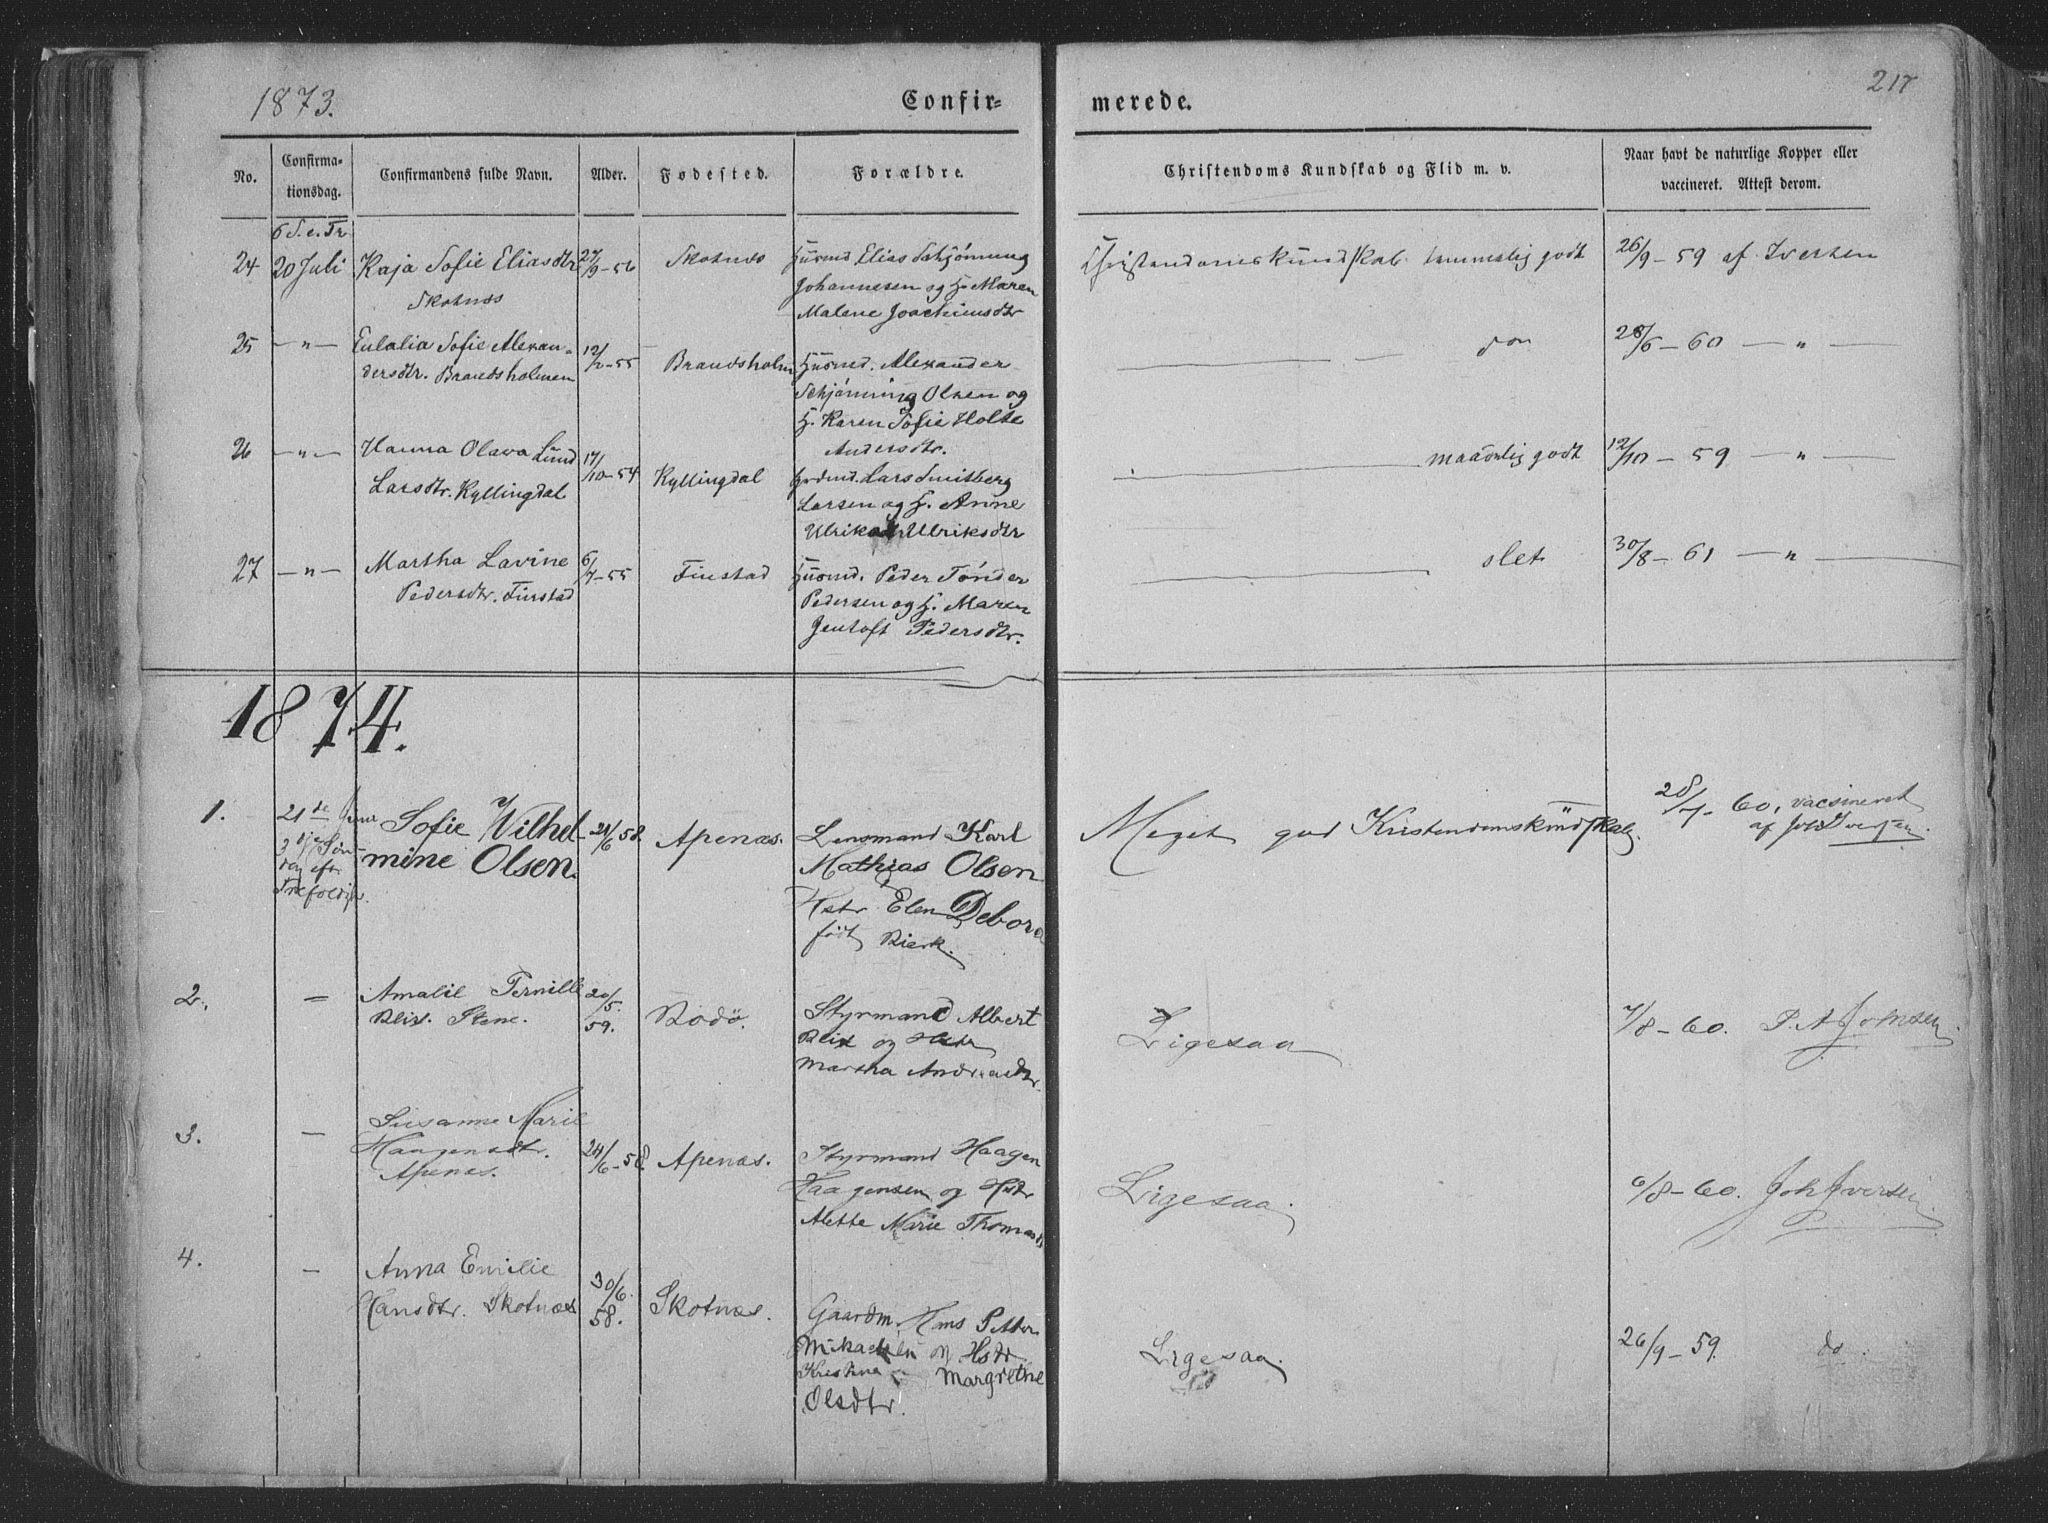 1873.
Confir=
merede.
217
No.
Confirma-
tionsdag.
Confirmandens fulde Navn.
Alder.
Fødested.
Forældre.
Christendoms Kundskab og Flid m. v.
Naar havt de naturlige Kopper eller
vaccineret. Attest derom.
6 S. e. Tr.
24 20 Juli Kaja Sofie Eliasdtr 27/9-56 Skotnæs Husmd Elias Schjønning Christendomskundskab temmelig godt 26/9-59 af Iversen
Skotnæs Johannesen og H. Maren
Malene Joachimsdtr
25 —"— Eulalia Sofie Alexan- 12/2-55 Brandsholm Husmd. Alexander don 28/6-60 —"—
dersdtr. Brandsholmen Schjønning Olsen og
H. Karen Sofie Holte
Andersdtr.
26 —"— Hanna Olava Lund 17/10-54 Kyllingdal Grdmd. Lars Smitberg maadelig godt 12/10-59 —"—
Larsdtr. Kyllingdal Larsen og H. Anne
Ulrika Ulriksdtr
27 —"— Martha Lavine 6/7-55 Finstad Husmd. Peder Tønder slet 30/8-61 —"—
Pedersdtr. Finstad Pedersen og H. Maren
Jentoft Pedersdtr.
1874.
1. 21de Juni Sofie Wilhel 21/6 58. Apenæs. Lensmand Karl Meget god Kristendomskundskab 28/7-60, vacsineret
3dje Søn- mine Olsen. Mathias Olsen af Joh Iversen
dag efter Hstr Elen Debora
Trefoldigh. født Bierk.
2. — Amalie Pernille 20/5. Bodø. Styrmand Albert Ligesaa 7/8-60. P. A Johnsen
Blix. Stene. 59. Blix og Hstr
Martha Andreasdtr.
3. — Susanne Marie
Haagensdtr. 24/6-58. Apenæs. Styrmand Haagen Ligesaa. 6/8-60. Joh Iversen
Apenæs. Haagensen og Hstr
Alette Marie Thomasd
4. — Anna Emilie 30/6. Skotnæs. Gaardm. Hans Petter Ligesaa. 26/9-59. do
Hansdtr. Skotnæs 58. Mikaelsen og Hstr
Kristine Margrethe
Olsdtr.